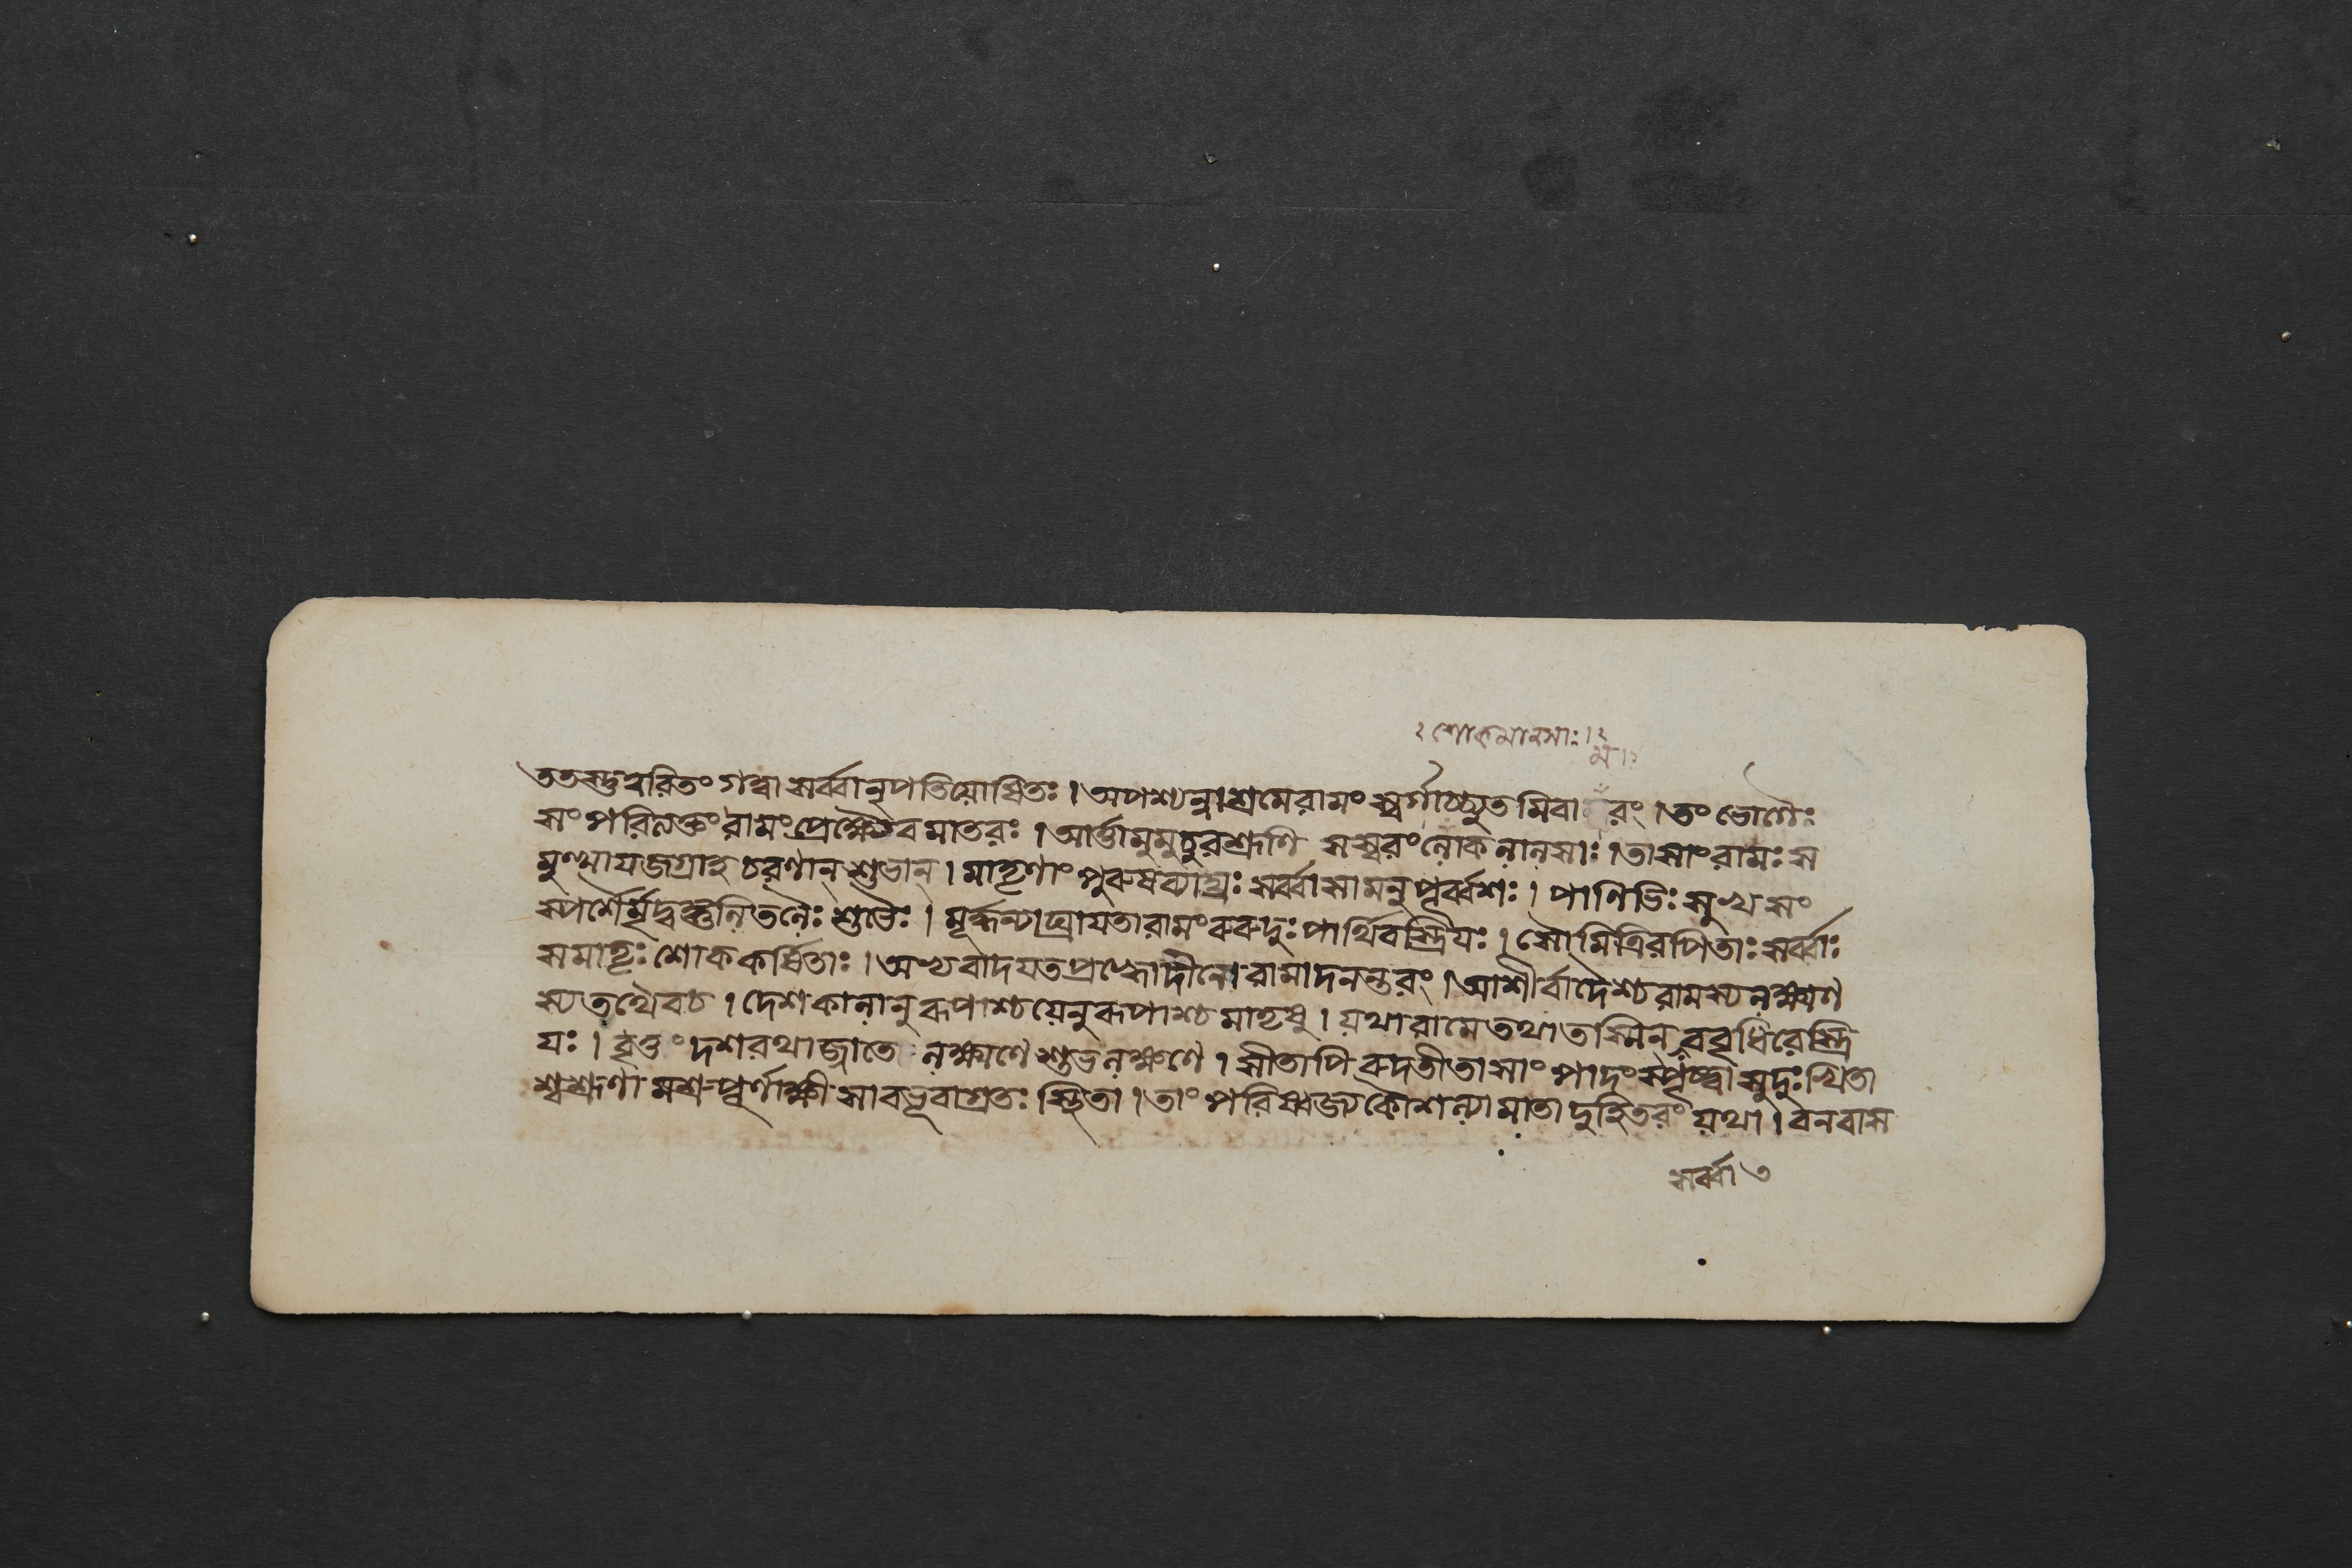 ঃ শোকমানসাঃ। ২
ম। ঃ
ততস্তু ত্বরিতং গত্বা সর্ব্বা নৃপতিযোষিতঃ । অপশ্যন্নাশ্রমে রামং স্বর্গাচ্চ্যুতমিবা রং । তং ভোগৈঃ
সংপরিত্যক্তং রামং প্রেক্ষ্যৈব মাতরঃ । আর্ত্তা মুমুচুরশ্রূণি সস্বরং লোকলালসাঃ । তাসাং রামঃ স
মুত্থায জগ্রাহ চরণান্ শুভান্ । মাতৃণাং পুরুষব্যাঘ্রঃ সর্ব্বাসামনুপূর্ব্বশঃ । পাণিভিঃ সুখসং
স্পর্শৈর্মৃদ্বঙ্গুলিতলৈঃ শুভৈঃ । মূর্দ্ধ্ন্যাঘ্রাযতা রামং রুরুদুঃ পার্থিবস্ত্রিযঃ । সৌমিত্রিরপি তাঃ সর্ব্বাঃ
সমাতৃঃ শোককর্ষিতাঃ । অভ্যবাদযত প্রহ্বো দীনো রামাদনন্তরং । আশীর্ব্বাদৈশ্চ রামস্য লক্ষ্মণ
স্য তথৈব চ । দেশকালানুরূপাশ্চ যেনুরূপাশ্চ মাতৃষু । যথা রামে তথা তস্মিন্ ববৃধিরে স্ত্রি
যঃ । বৃত্তং দশরথাজ্জাতে লক্ষ্মণে শুভলক্ষণে । সীতাপি রুদতী তাসাং পাদং স্পৃষ্ট্বা সুদুঃখিতা
শ্বশ্রূণামশ্রুপূর্ণাক্ষী সা বভূবাগ্রতঃ স্থিতা । তাং পরিষ্বজ্য কৌশল্যা মাতা দুহিতরং যথা । বনবাস
সর্ব্বা ৩